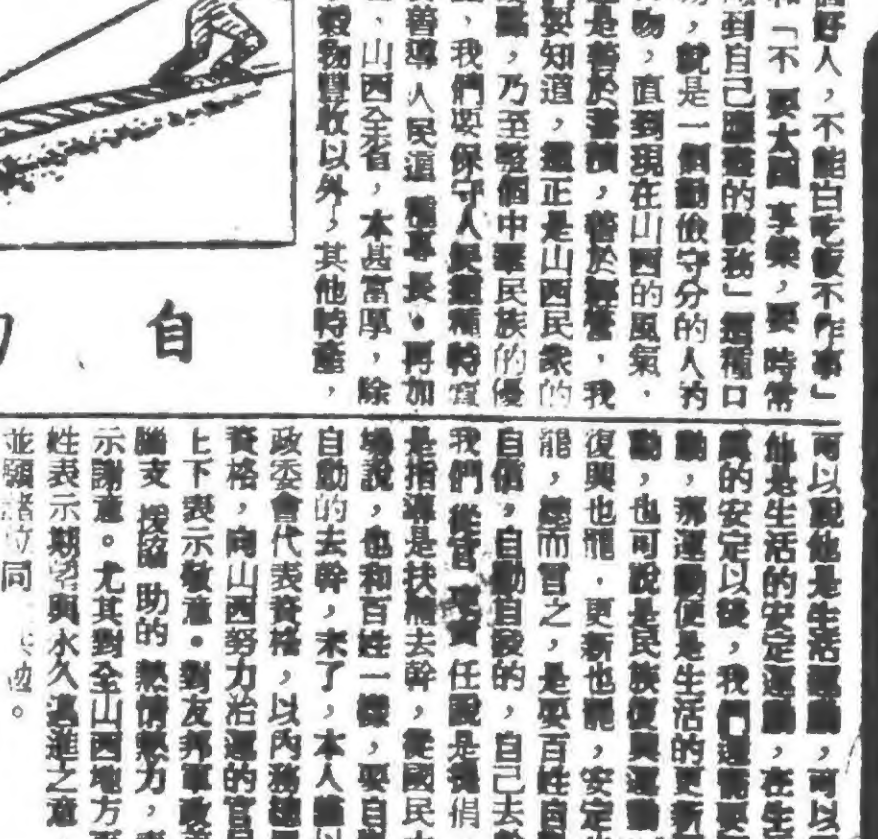 個好人，不能白吃飯不作事」
和「不要太圖享樂，要時常
到自己應盡的職務」這種口
，就是一個勤儉守分的人的
物，直到現在山西的風氣，
是善於蓄積，善於經營，我
要知道，還正是山西民衆的
，乃至整個中華民族的優
，我們要保守人民這種特
善導人民這種專長。再加
，山西全省，本甚富厚，除
穀物豐收以外，其他特產，
自
可以說他是生活運動，可以
他是生活的安定運動，在生
的安定以後，我們還需要
動，那運動便是生活的更新
動，也可說是民族復興運動
復興也罷，更新也罷，安定
罷，總而言之，是要百姓自
自信，自動自發的，自己去幹
我們從官 任說是提倡
是指導是扶植去幹，從國民
場說，也和百姓一樣，要自
自動的去幹，末了，本人謹以
政委會代表資格，以內務總
資格，向山西努力治運的官
上下表示敬意。對友邦軍政
腦支援協助的熱情熱力，
示謝意。尤其對全山西地方
姓表示期望與永久邁進之意
並願諸位同